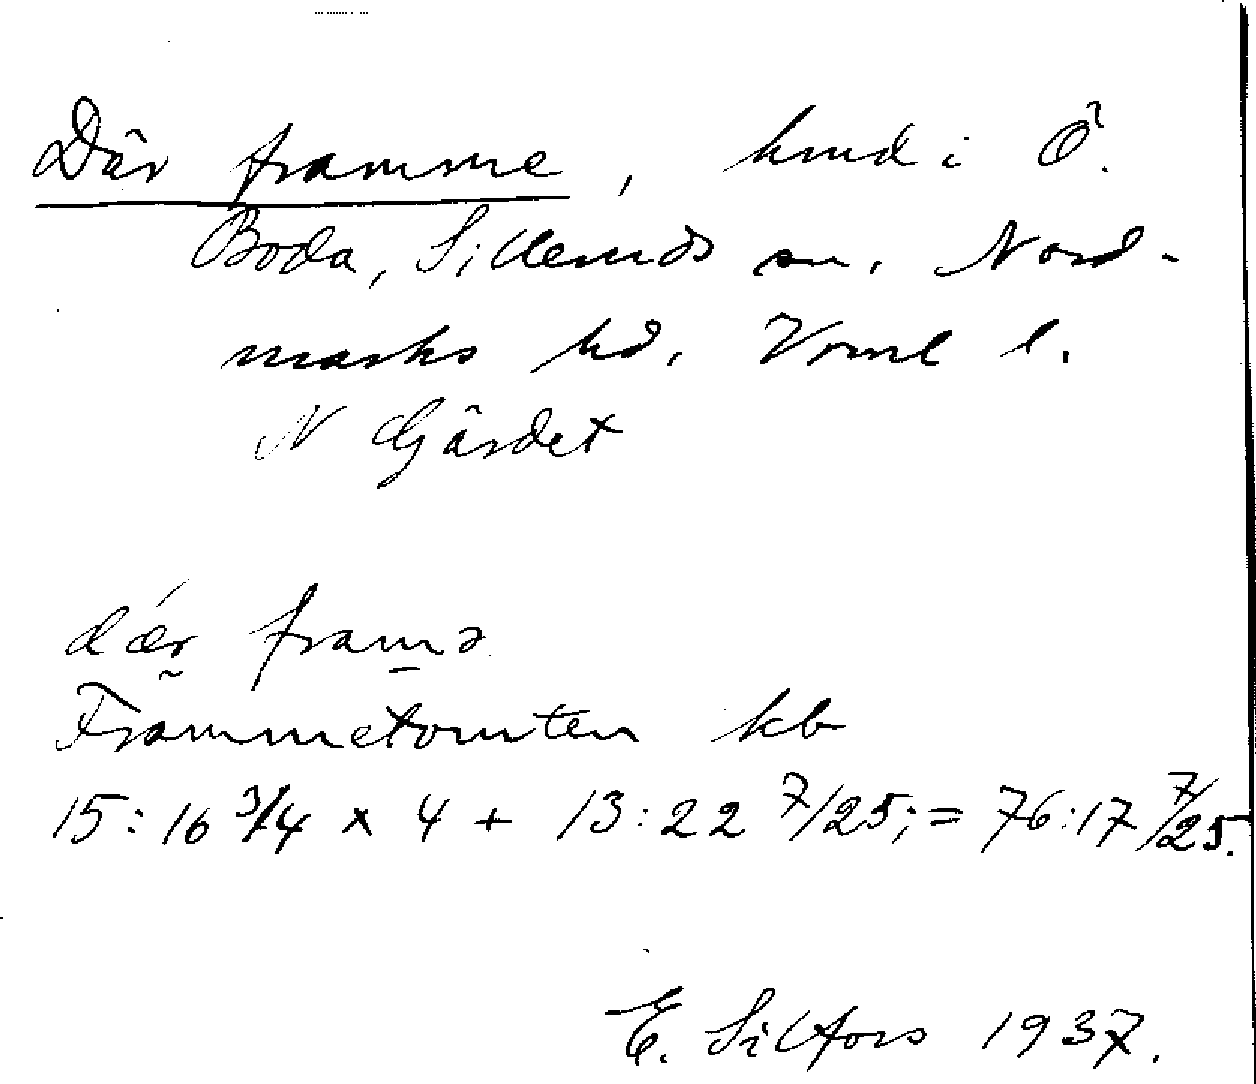 Där framme, hmd i Ö.
Boda, Silleruds sn. Nord-
marks hd. Vrml l.
N Gärdet
dǽr framə
Frammetomten kb
15:16 3/4 x 4 + 13:22 7/25; = 76:17 7/25.
E. Silfors 1937.